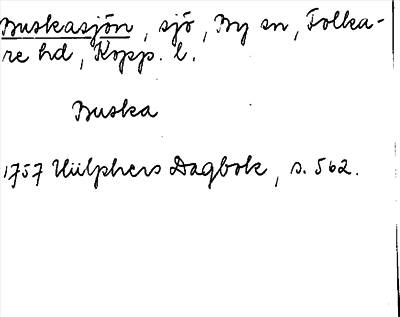 Buskasjön, sjö, By sn, Folka-
re hd, Kopp. l.
Buska
1757 Hülphers Dagbok, s. 562.